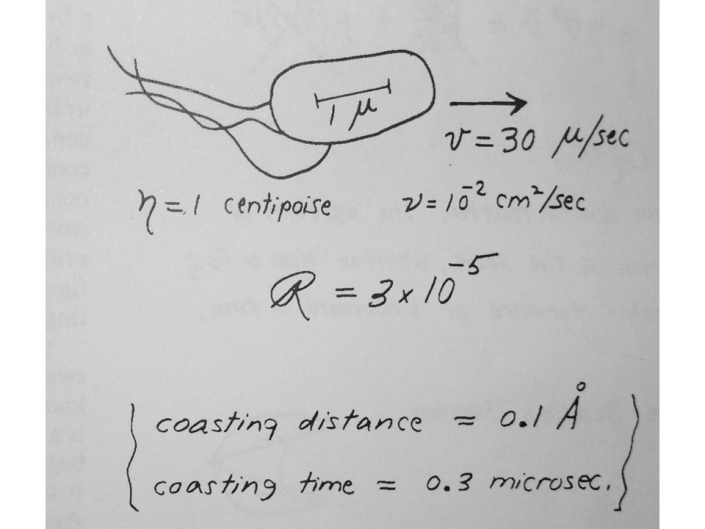 1 μ
v = 30 μ/sec
η = 1 centipoise ν = 10⁻² cm²/sec
R = 3 × 10⁻⁵
coasting distance ≈ 0.1 Å
coasting time ≈ 0.3 microsec.